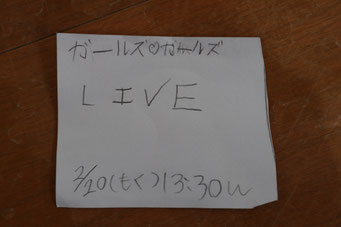 ガールズ♡ガールズ
LIVE
2/20(もく)13:30〜